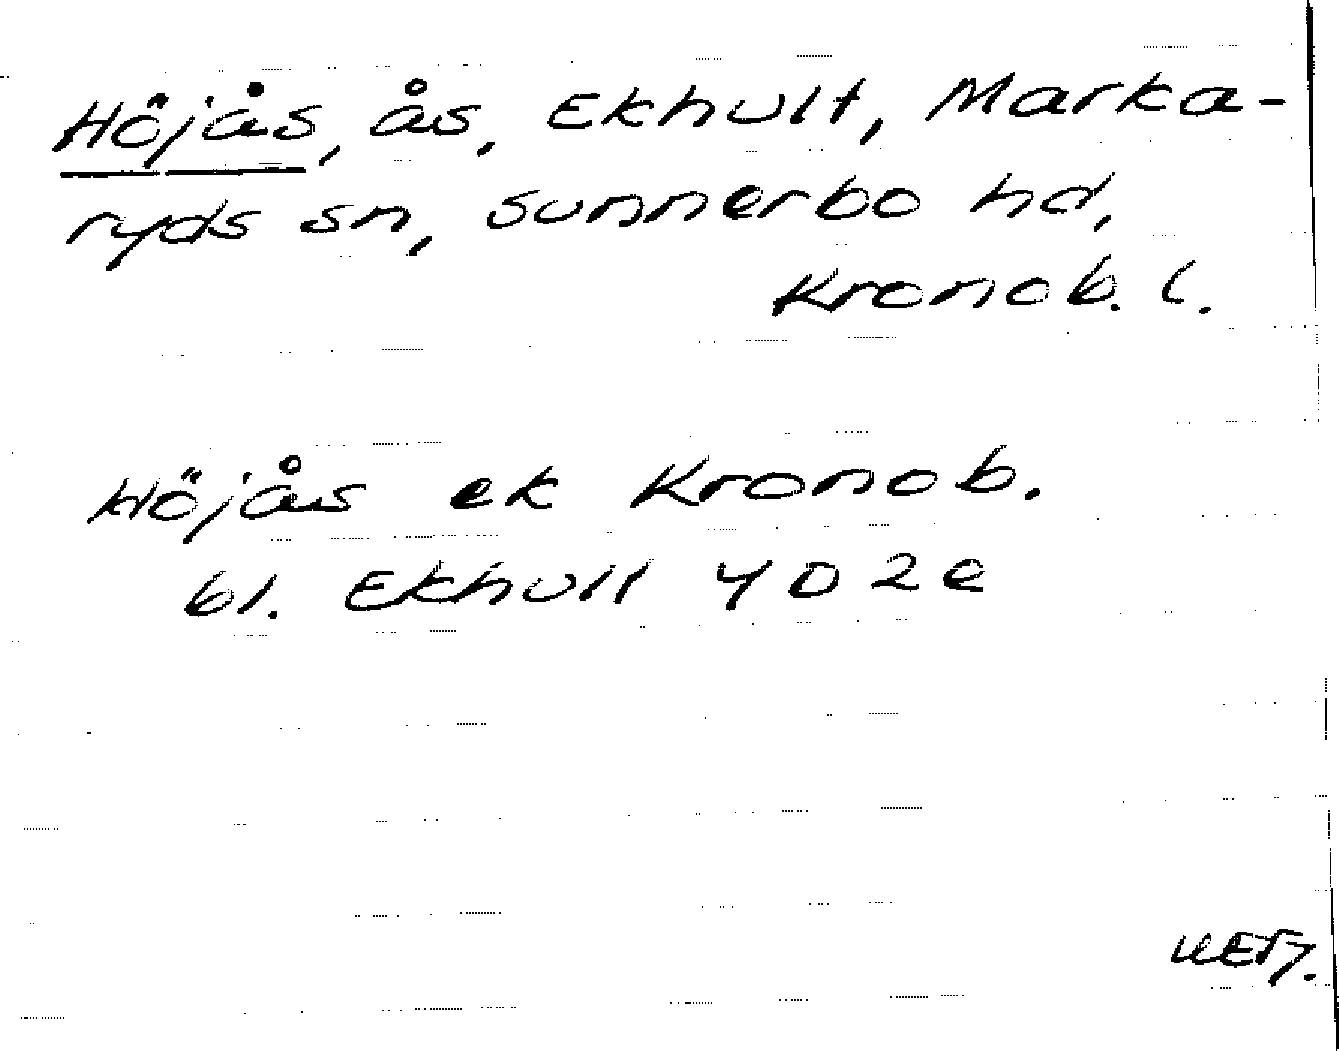 Höjås, ås, Ekhult, Marka-
ryds sn, Sunnerbo hd,
Kronob. l.
Höjås ek Kronob.
bl. Ekhult 4D 2e